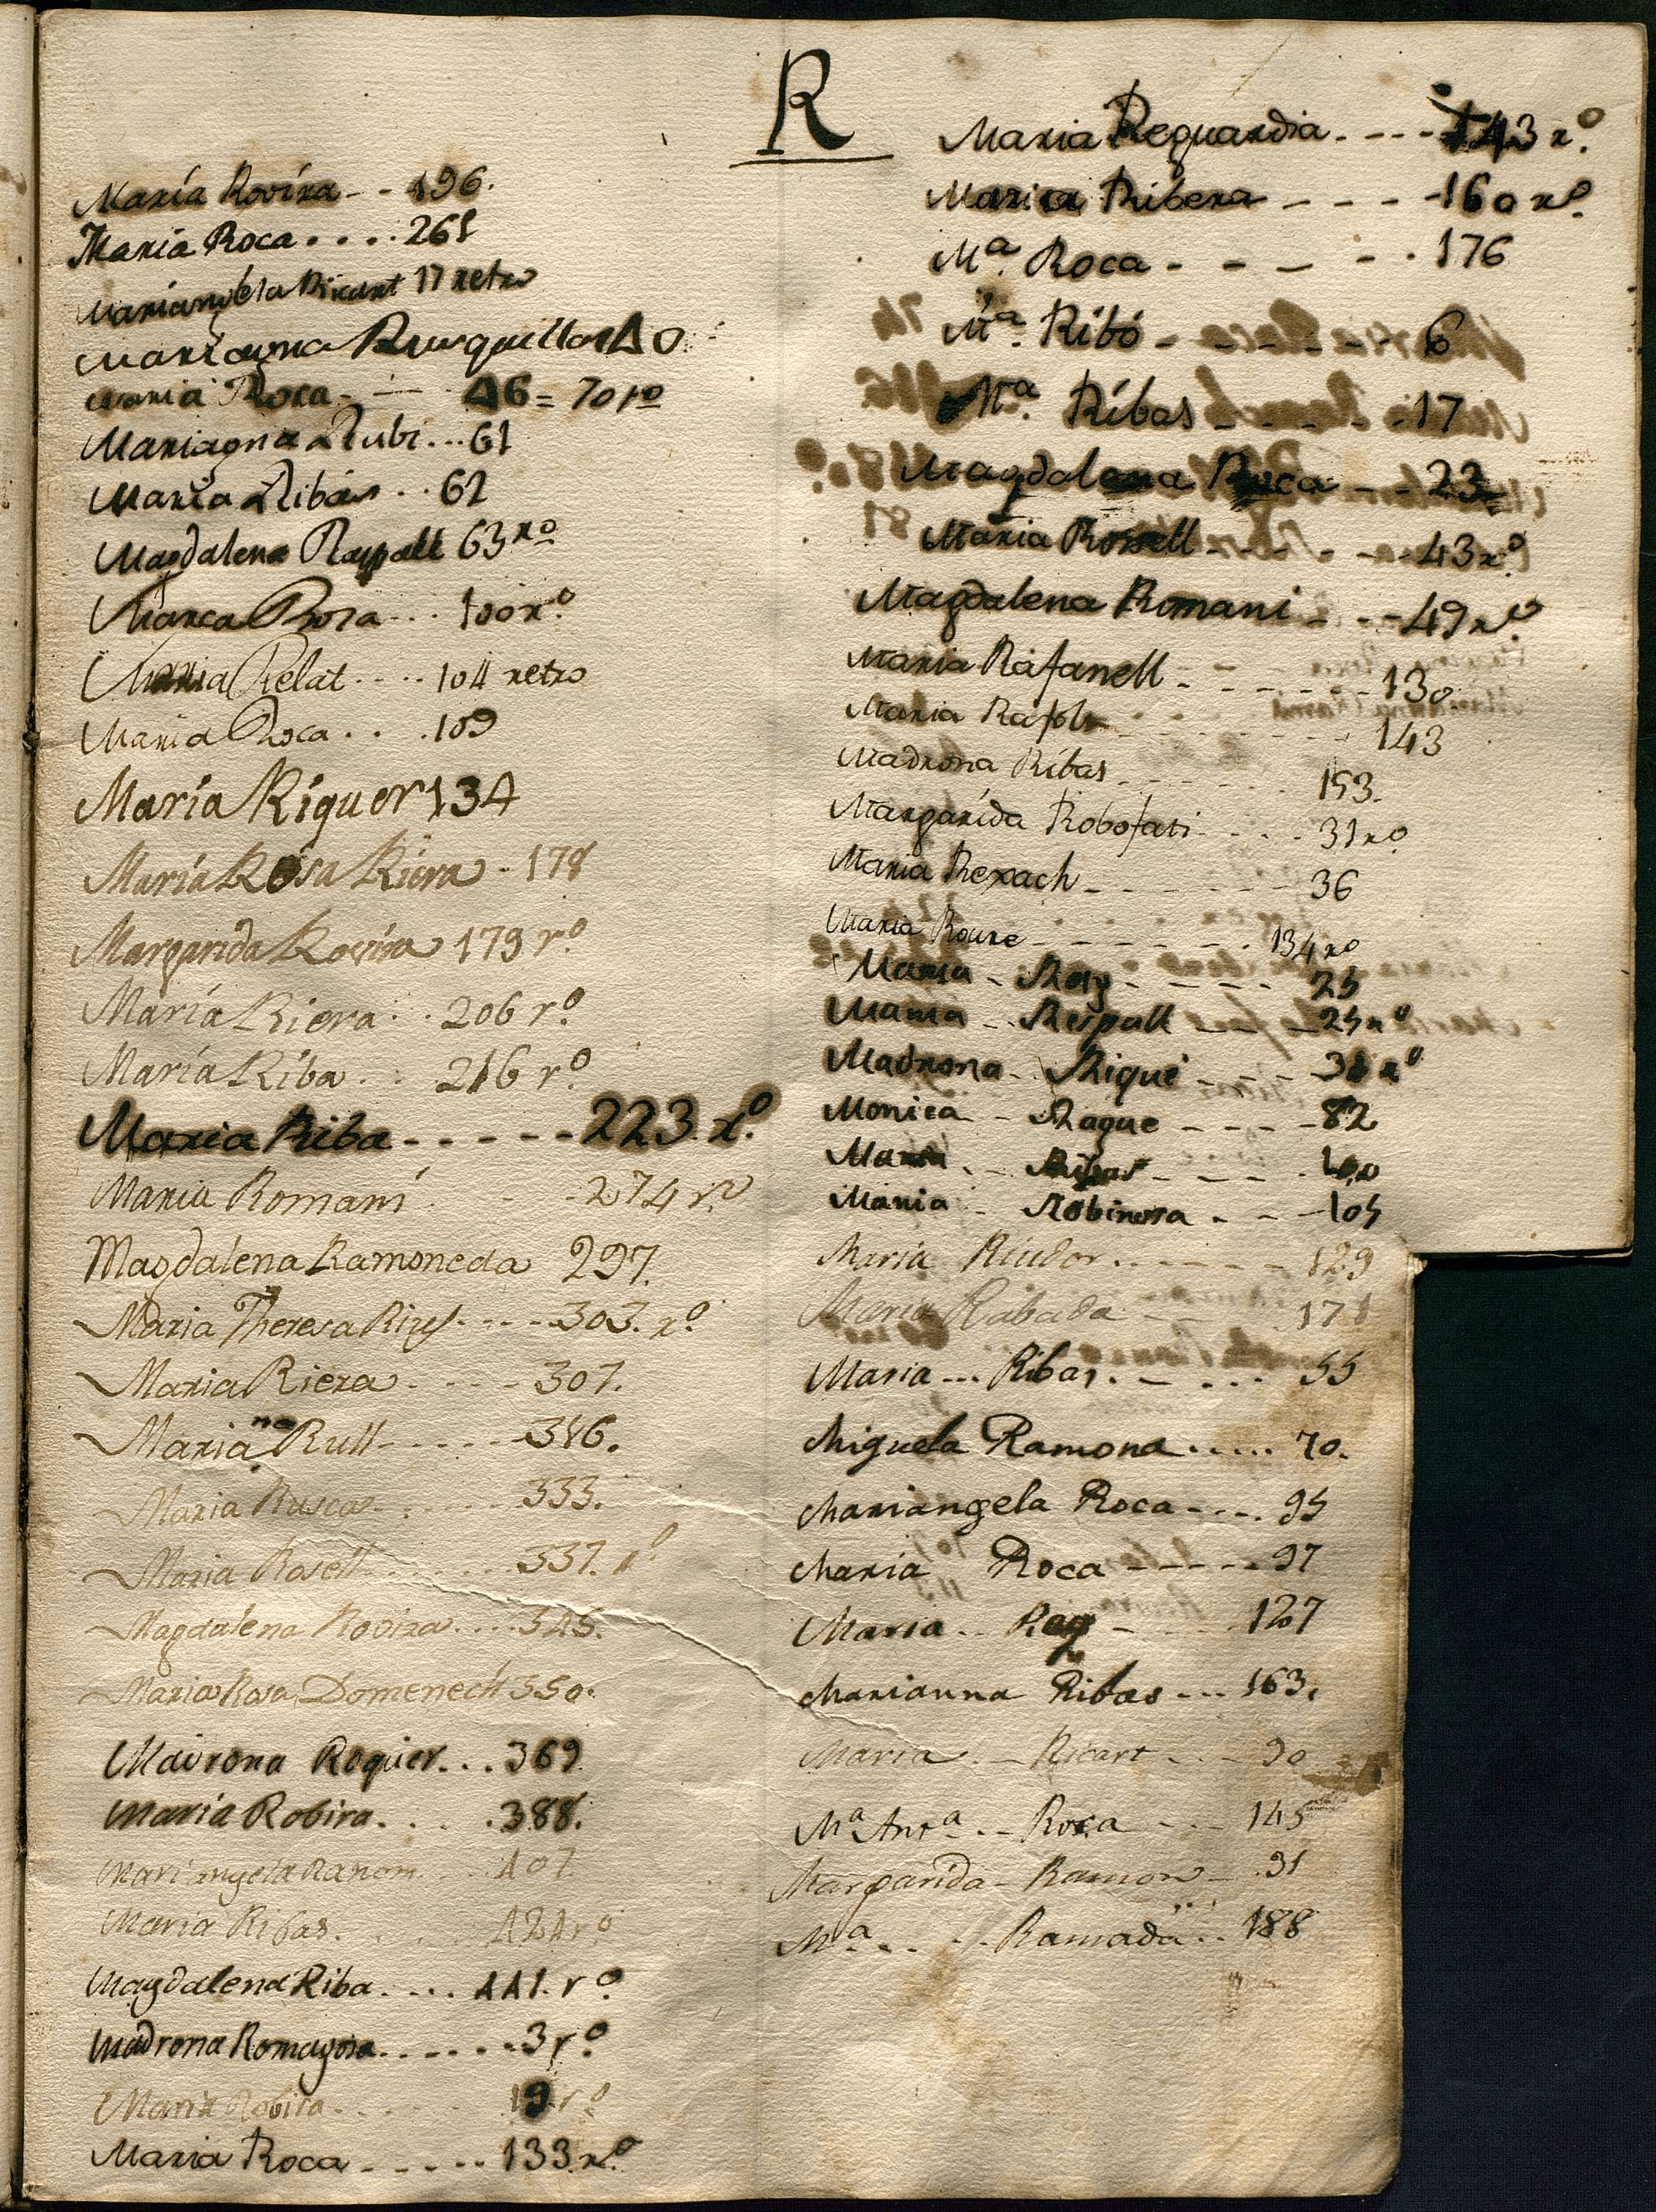 R
María Rovíra - - 196.
Maria Roca . . . . 261
Mariangela Ricart 17 retro
Mariagna Rusquellas 40
Maria Roca - - - 46 = 70 rº
Mariagna Rubi . . . 61
Maria Ribas . . 62
Magdalena Raspall 63 rº
Maria Rosa . . . 100 rº
Maria Relat . . . . 104 retro
Maria Roca . . . 109
María Riguer 134
María Rosa Riera - 178
Margarida Rovíra 179 rº
María Riera . . 206 rº
María Riba . . . 216 rº
Maria Riba - - - - - - 223. rº
Maria Romaní - - 274 rº
Magdalena Ramoneda 297.
Maria Theresa Rius - - - - 303. rº
Maria Riera - - - - 307.
Mariana Rull - - - - - 316.
Maria Ruscas - - - - - 333.
Maria Rosell - - - - - 337. rº
Magdalena Rovira . . . . 345.
Maria Rosa Domenech 350.
Madrona Roquer . . . 369
Maria Robira . . . . 388.
Mariangela Ramon . . . 407
Maria Ribas . . . 424 rº
Magdalena Riba . . . . 441. rº
Madrona Romagosa . . . . . . 3 rº
Maria Robira . . . . . 19 rº
Maria Roca - - - - - 133. rº
Maria Reguardia - - - - 143 rº
Maria Ribera - - - - 160 rº
Mª Roca - - - - . 176
Mª Ribó - - - - - - 6
Mª Ribas - - - - - 17
Magdalena Roca - - 23
Maria Rossell - - - - - - 43 rº
Magdalena Romani - - - 49 rº
Maria Rafanell - - - - - - 130
Maria Rafols - - - - - - - 143
Madrona Ribas - - - - - 153.
Margarida Robofati - - - 31 rº
Maria Rexach - - - - - - 36
Maria Roure - - - - - - - 134 rº
Maria - Roig - - - - - 25
Maria - Respall - - - 25 rº
Madrona - Riqué - - - - 38 rº
Monica - Rague - - - - 82
Maria - - Ribas - - - - 100
Maria - Robinossa - - - 105
Maria Riudor . - - - - - 129
Maria Rabada - - - 171
Maria - - - Ribas . - . . . 55
Miguela Ramona . . . . . 70.
Mariangela Roca - - - . 95
Maria Roca - - - - - 97
Maria . . Roig - - - - 127
Marianna Ribas - - - 163.
Maria . - Ricart - . - 90
Mª Antª . . - Roca - - - 145
Margarida - Ramon - . 31
Mª . . . . . Ramada . . 188